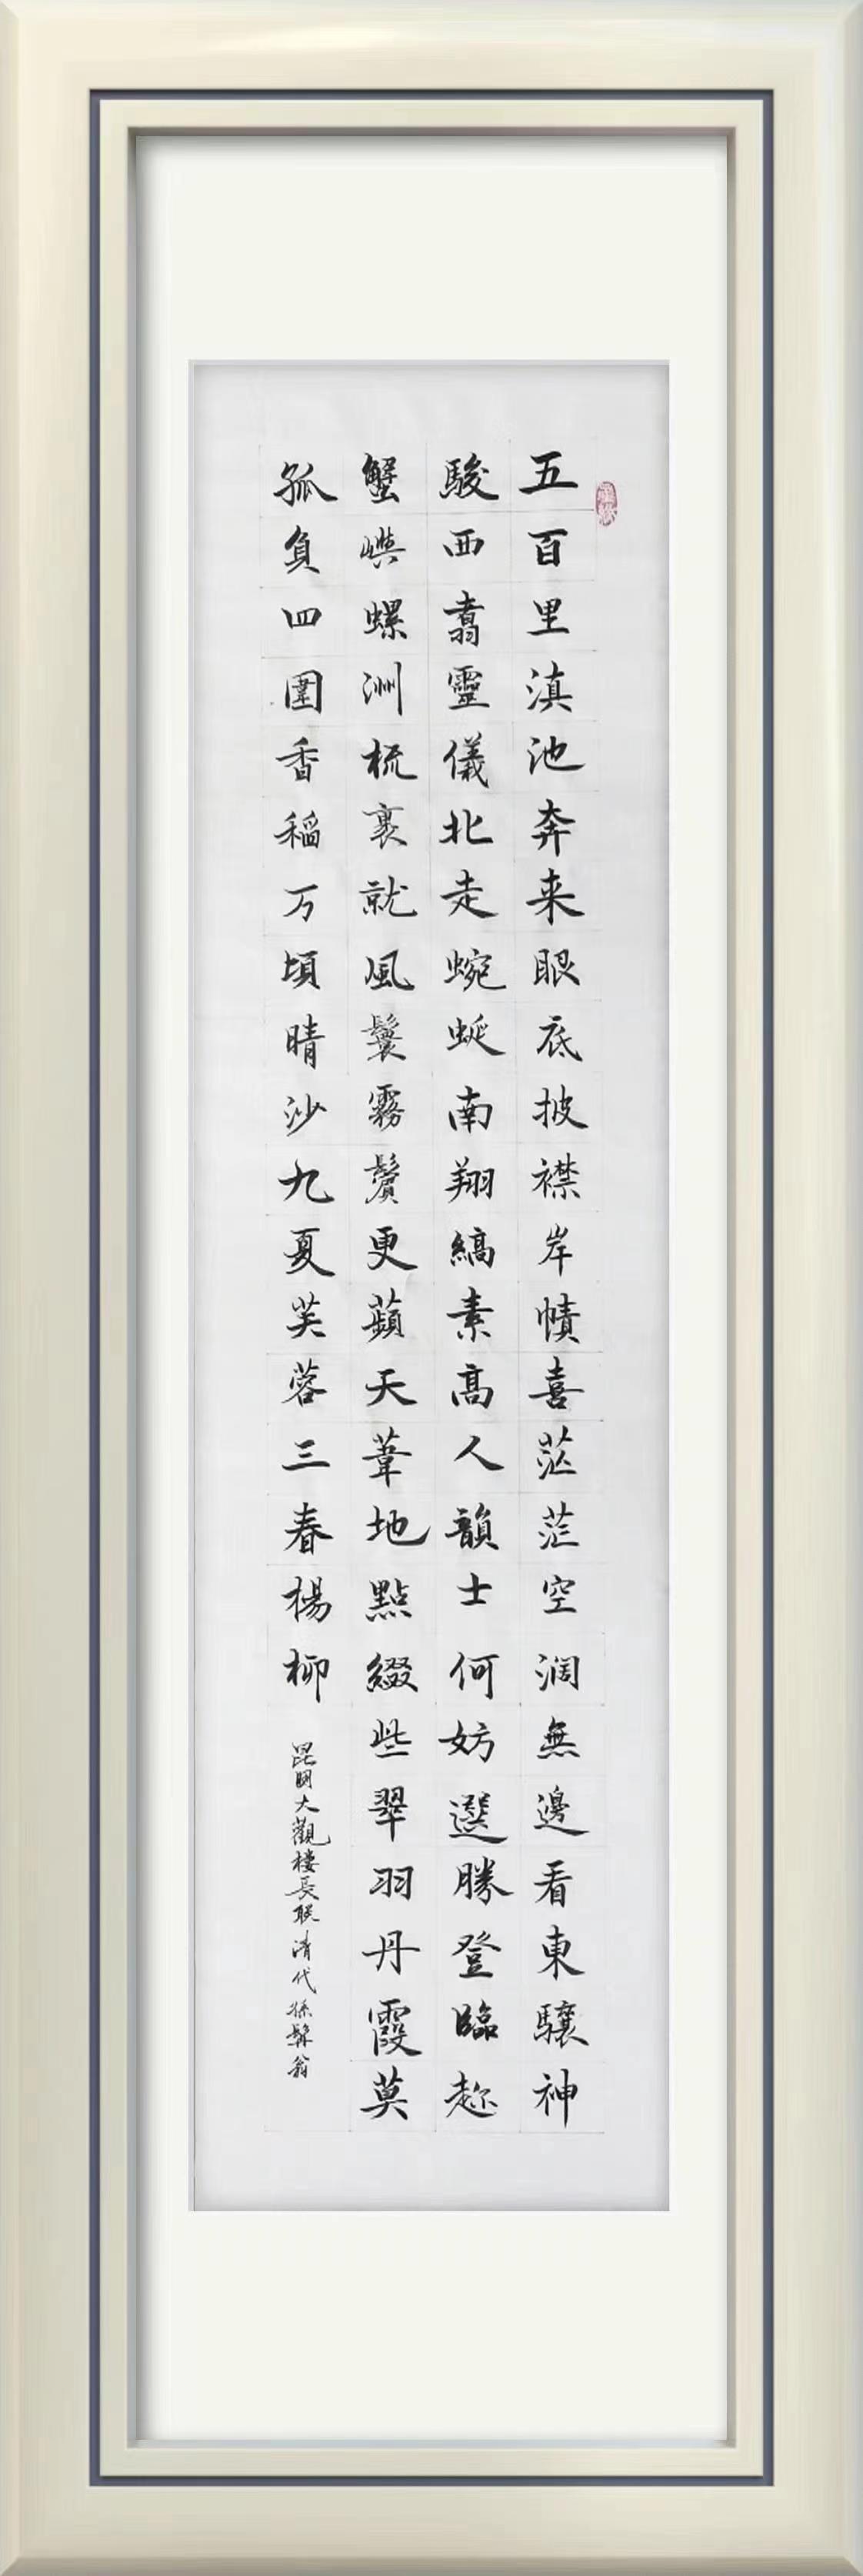 五百里滇池奔来眼底披襟岸幘喜茫茫空濶無邊看東驤神
駿西翥靈儀北走蜿蜒南翔縞素髙人韻士何妨選勝登臨趂
蟹嶼螺洲梳裹就風鬟霧鬢更蘋天葦地點綴些翠羽丹霞莫
孤負四圍香稻万頃晴沙九夏芙蓉三春楊柳
昆明大觀樓長联清代孫髯翁